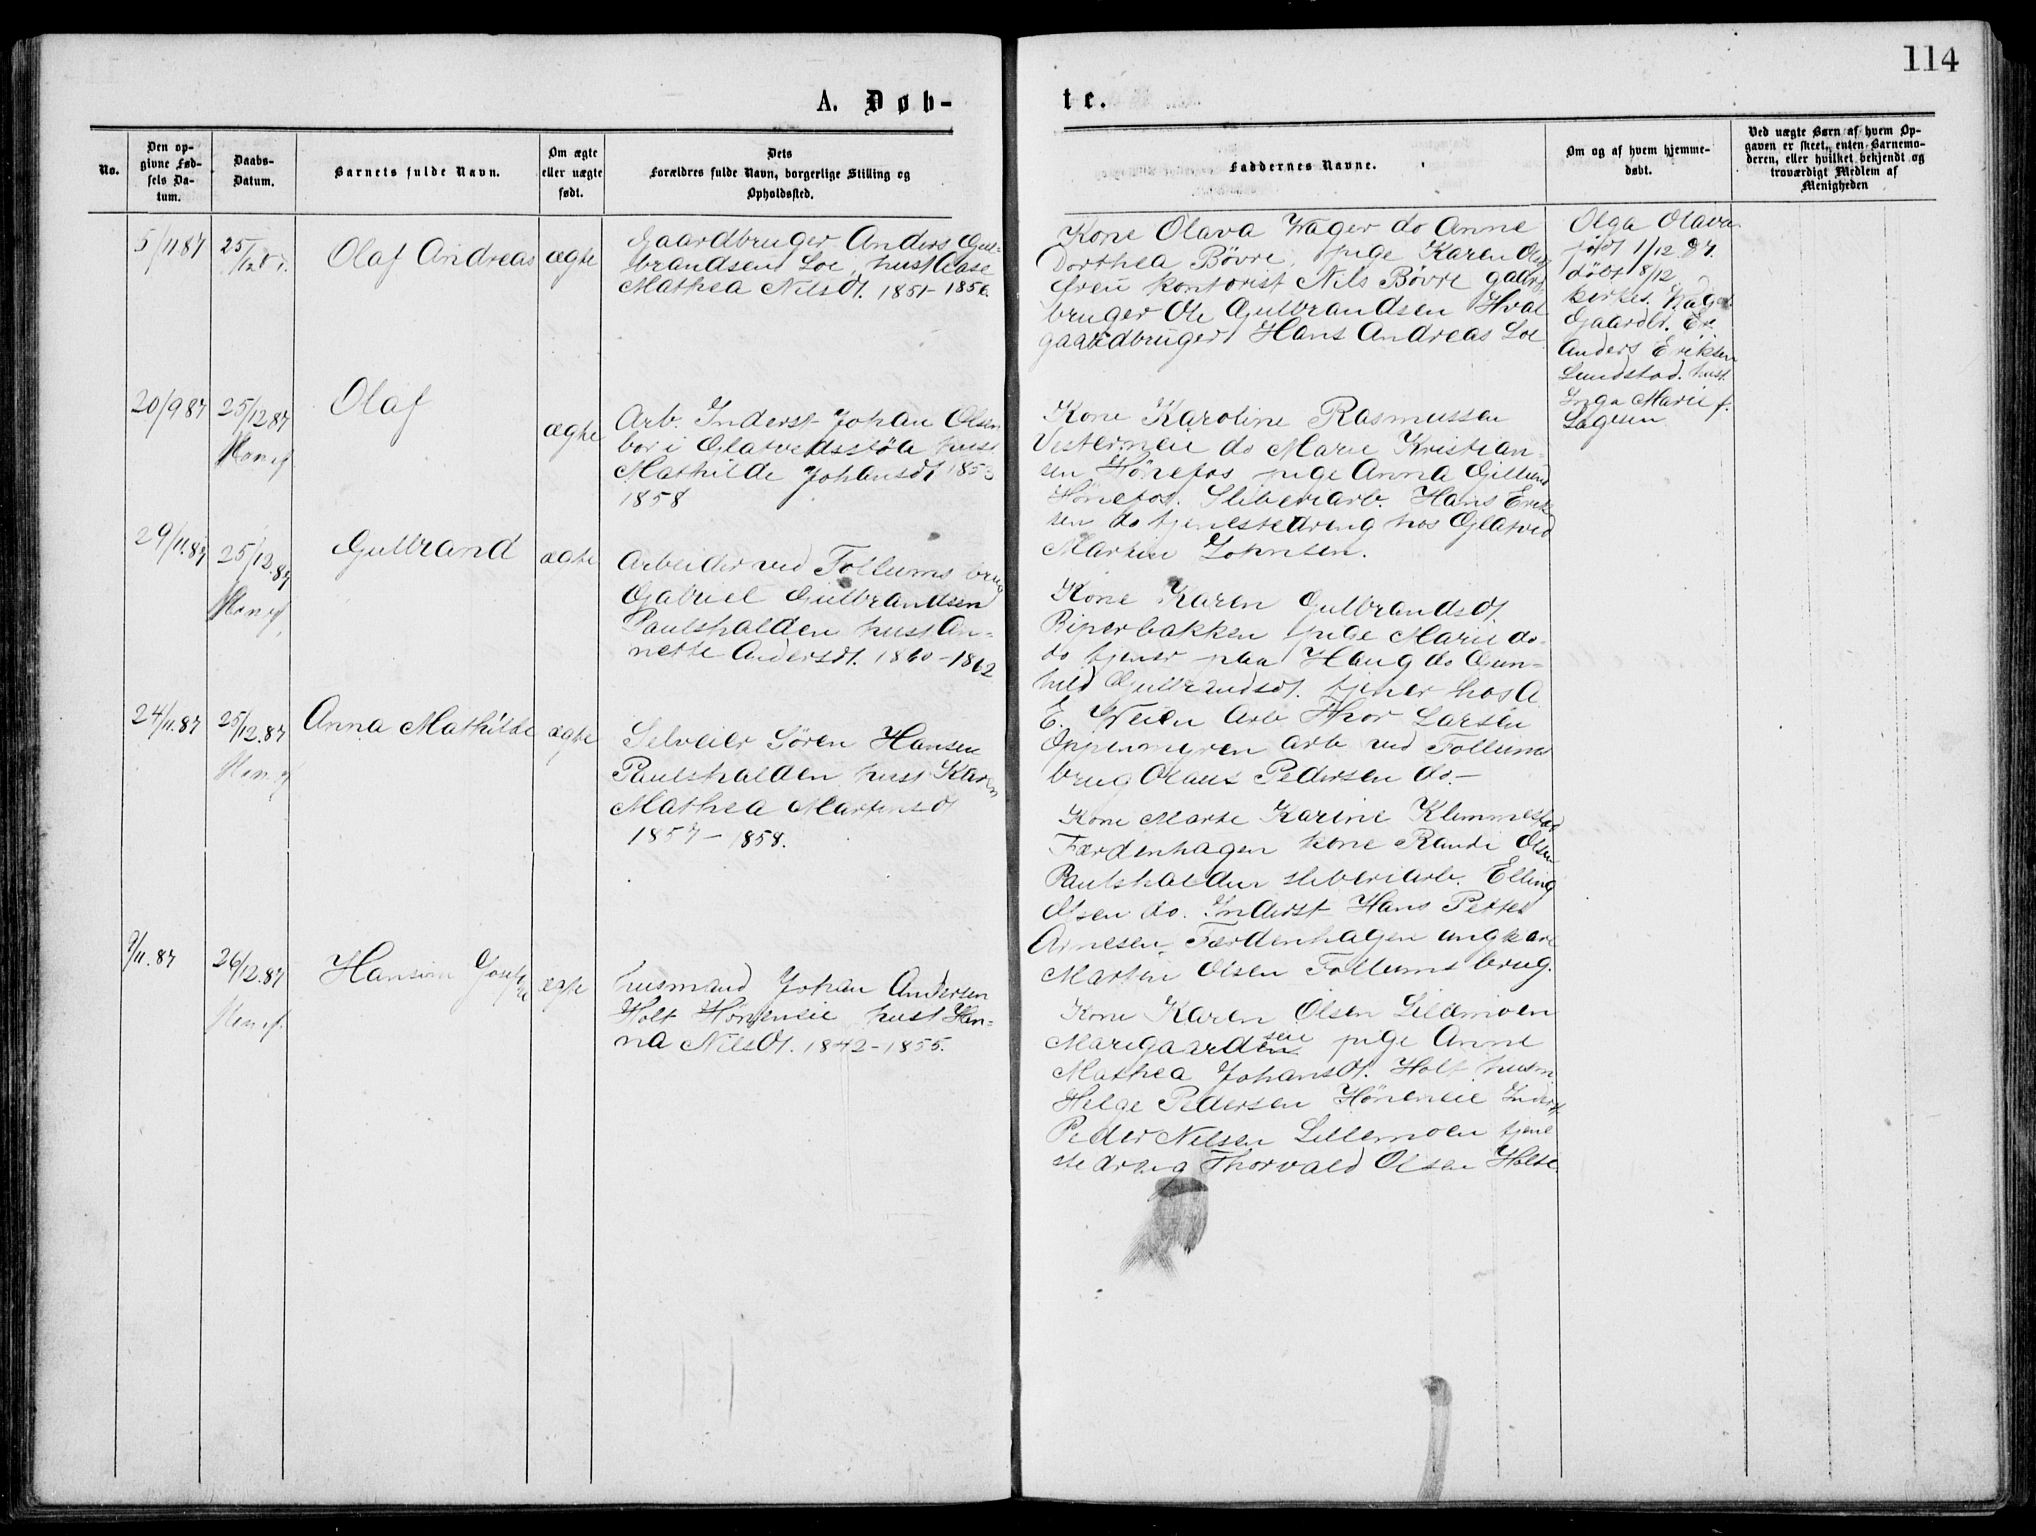 114
A. Døb-
te.
No.
Den op-
givne Fød-
sels Da-
tum.
Daabs-
Datum.
Barnets fulde Navn.
Om ægte
eller uægte
født.
Dets
Forældres fulde Navn, borgerlige Stilling og
Opholdssted.
Faddernes Navne.
Om og af hvem hjemme-
døbt.
Ved uægte Børn af hvem Op-
gaven er skeet, enten Barnemo-
deren, eller hvilket bekjendt og
troværdigt Medlem af
Menigheden
5/11 87
25/12
Olaf Andreas
ægte
Gaardbruger Anders Gul-
brandsen Loe, hust Aase
Mathea Nilsdt. 1851-1850.
Kone Olava Wager do Anne
Dorthea Bøvre, pige Karen
kontorist Nils Bøvre gaard
bruger Ole Gulbrandsen Hval
gaardbruger Hans Andreas Loe
Olga Olava
født 1/12 87.
døbt 8/12
Gaardbr.
Anders Eriksen
Lundstad. hust.
Inga Marie f.
20/9 87
25/12 87
Olaf
ægte
Arb. Inderst Johan Olsen
bor i Glatvedsstøa hust
Mathilde Johansdt 1853
1858
Kone Karoline Rasmussen
Vesterneie do Marie Kristian-
sen Hønefos pige Anna
Hønefos. Sliberiarb. Hans Erik
sen do tjenestedreng hos Glatved
Martin Johnsen.
29/11.87
25/12.87
Gulbrand
ægte
Arbeider ved Follums brug
Gabriel Gulbrandsen
Paulshalden hust An-
nette Andersdt. 1860-1862
Kone Karen Gulbrandsdt.
Piperbakken pige Marie do
do tjener paa Haug do Gun-
hild Gulbrandsdt. tjener hos A
E. Veien Arb Thor Larsen
Oppenmyren arb ved Follums
brug Olaus Pedersen do-
24/11.87
25/12.87
Anna Mathilde
ægte
Selveier Søren Hansen
Paulshalden hust Karen
Mathea Martinsdt
1857-1858.
Kone Marte Karine
Færdenhagen kone Randi Olsen
Paulshalden sliberiarb. Elling
Olsen do. Inderst Hans Petter
Arnesen Færdenhagen ungkarl
Martin Olsen Follums brug.
/11.87
26/12.87
Hansine
ægte
husmand Johan Andersen
Holt Høneneie hust
Nilsdt. 1842-1855.
Kone Karen Olsen Lillemoen
pige Anne
Mathea Johansdt. Holt husm
Helge Pedersen Høneneie Inderst
Peder Nilsen Lillemoen tjene
ste dreng Thorvald Olsen